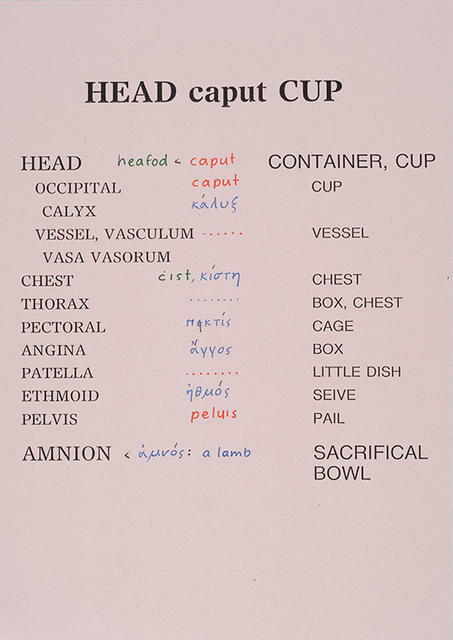 HEAD caput CUP
HEAD heafod < caput CONTAINER, CUP
OCCIPITAL caput CUP
CALYX κάλυξ
VESSEL, VASCULUM ...... VESSEL
VASA VASORUM
CHEST cist, κίστη CHEST
THORAX ........ BOX, CHEST
PECTORAL πηκτίς CAGE
ANGINA ἄγγος BOX
PATELLA ........ LITTLE DISH
ETHMOID ἠθμός SEIVE
PELVIS peluis PAIL
AMNION < ἀμνός: a lamb SACRIFICAL
BOWL